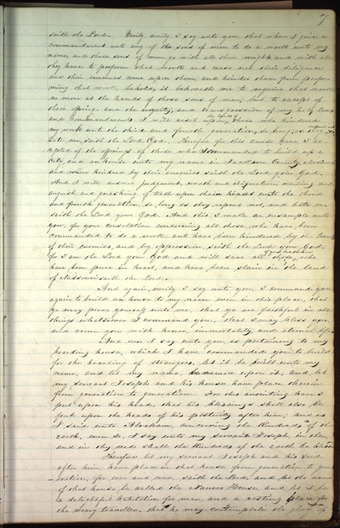 7
saith the Lord. Verily verily I say unto you, that when I give a
commandment unto any of the sons of men, to do a work unto my
name, and those sons of men go with all their might, and with all
they have to perform that work, and cease not their diligence
and their enemies come upon them, and hinder them from perfor
ming that work, behold, it behoveth me to require that work
no more at the hands of those sons of men, but to accept of
their offerings. and the iniquity and transgression of my holy laws
and commandments I will visit upon the heads of those who hindered
my work, unto the third and fourth generation, so long as they
hate me, saith the Lord God. Therefore for this cause have I ac
cepted of the offerings of those whom I commanded to build up a
City and an house unto my name in Jackson County, Missouri
and were hindred by their enemies saith the Lord your God.
And I will answer judgement, wrath and indignation, wailing and
anguish, and gnashing of teeth upon their heads unto the third
and fourth generation, so long as they repent not, and hate me
saith the Lord your God. And this, I make an example unto
you, for your consolation concerning all those, who have been
commanded to do a work and have been hindered by the hands
of their enemies, and by oppression, saith the Lord your God,
for I am the Lord your God, and will save all those of your brethren, who
have been pure in heart, and have been slain in the land
of Missouri saith the Lord.
And again, verily I say unto you, I command you
again to build an house to my name even in this place, that
ye may prove yourselves unto me, that ye are faithful in all
things whatsoever I command you, that I may bless you
and crown you with honor, immortality, and eternal life.
And now I say unto you, as pertaining to my
boarding house, which I have commanded you to build
for the boarding of Strangers, let it be built unto my
name, and let my name be named upon it, and let
my servant Joseph and his house have place therein
from generation to generation. For this anointing have I
put upon his head, that his blessing shall also be
put upon the heads of his posterity after him; and as
I said unto Abraham, concerning the Kindreds of the
earth, even so, I say unto my servant Joseph, in thee
and in thy seed shall the Kindreds of the earth be blessed.
Therefore let my servant Joseph and his seed
after him, have place in that house from generation to gene
ration, for ever and ever, saith the Lord, and let the name
of that house be called the Nauvoo House, and let it be
a delightful habitation for man, and a resting place for
the weary traveller, that he may contemplate the glory